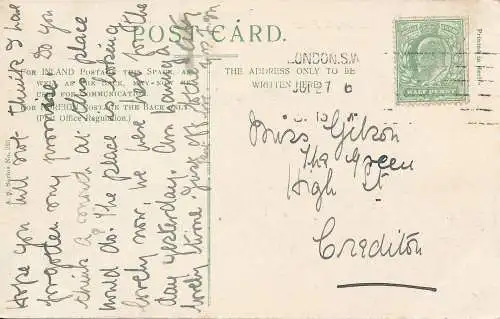 POST CARD.
FOR INLAND POSTAGE THIS SPACE, AS
WELL AS THE BACK, MAY NOW BE
USED FOR COMMUNICATION.
FOR FOREIGN POSTAGE THE BACK ONLY
(Post Office Regulation.)
THE ADDRESS ONLY TO BE
WRITTEN HERE.
LONDON.S.W
JUL 27 6
HALF PENNY
Printed in
Hope you will not think I had
forgotten my promise Do you
think a month at this place
would do. The place is looking
lovely now, we were here for the
day yesterday. Am having a
lovely time.
Miss Gibson
The Green
High St
Crediton